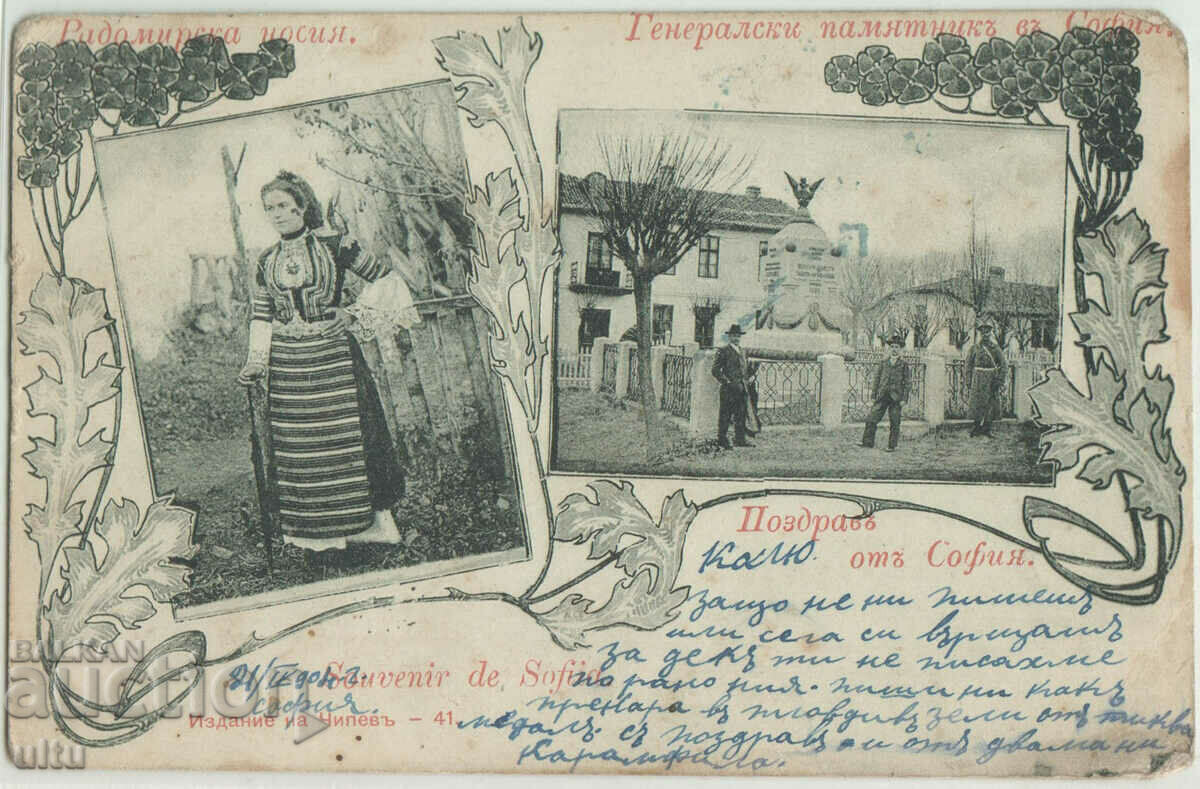 Радомирска носия.
Генералски памятникъ въ София.
Поздравъ
отъ София.
Калю.
защо не ни пишешъ
или сега си връщашъ
за декъ ти не писахме
по рано ния. пиши ни какъ
прекара въ Пловдивъ зели отъ тиква
медалъ. съ поздравъ и отъ двама ни
Карамфила.
София.
Souvenir de Sofia.
Издание на Чипевъ - 41.
BALKAN
auction
ultu